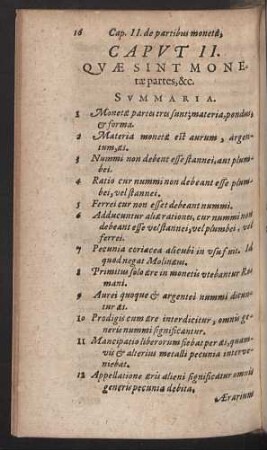 16 Cap. II. de partibus monetæ,
CAPVT II.
QVÆ SINT MONE-
tæ partes, &c.
SVMMARIA.
1 Monetæ partes tres sunt: materia, pondus,
& forma.
2 Materia monetæ est aurum, argen-
tum, æs.
3 Nummi non debent esse stannei, aut plum-
bei.
4 Ratio cur nummi non debeant esse plum-
bei, vel stannei.
5 Ferrei cur non esse debeant nummi.
6 Adducuntur aliæ rationes, cur nummi non
debeant esse vel stannei, vel plumbei, vel
ferrei.
7 Pecunia coriacea alicubi in vsu fuit. Id
quod negat Molinæus.
8 Primitus solo ære in monetis vtebantur Ro-
mani.
9 Aurei quoque & argentei nummi dicun-
tur æs.
10 Prodigis cum ære interdicitur, omnis ge-
neris nummi significantur.
11 Mancipatio liberorum fiebat per æs, quam-
vis & alterius metalli pecunia interve-
niebat.
12 Appellatione æris alieni significatur omnis
generis pecunia debita.
Ærarium